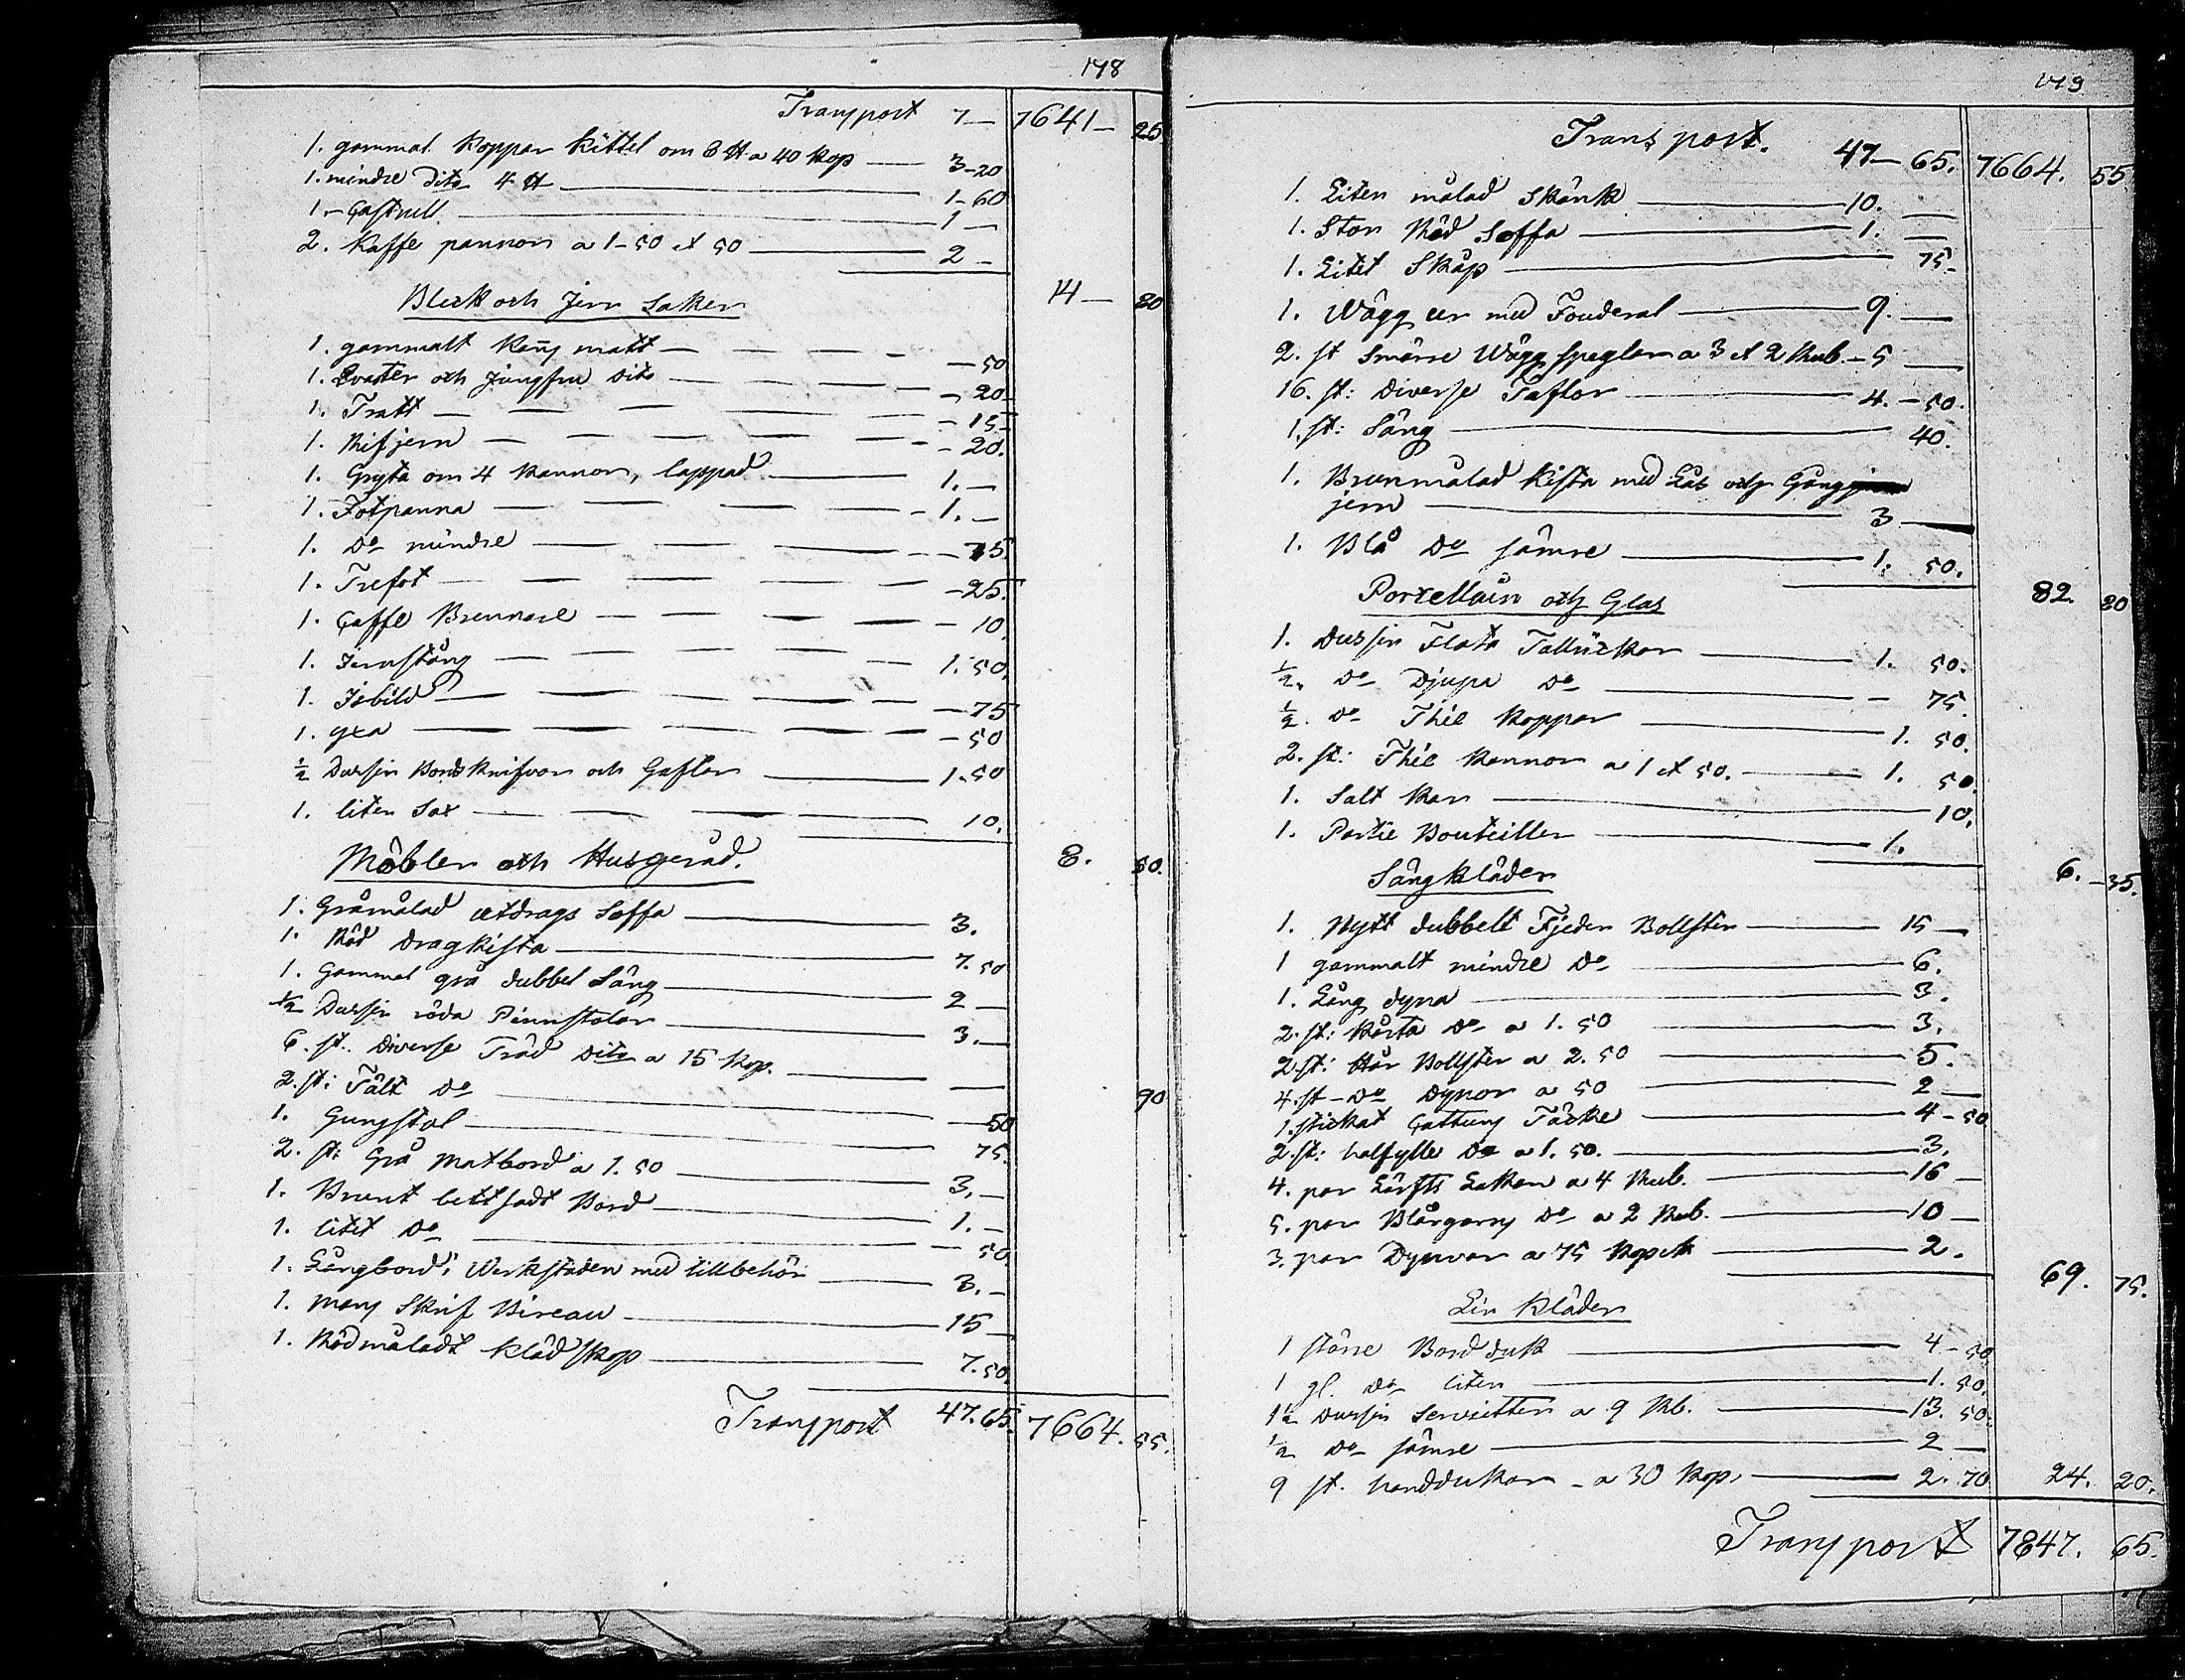 178
Transport 7— 7641— 25
1. gammal Koppar Kittel om 8 ℔ a 40 Kop — 3-20
1. mindre Dito 4 ℔ — 1-60
1.- Castrull — 1 —
2. Kaffe pannor a 1-50 et 50 — 2 -
14— 80
Bleck och Jern Saker
1. gammalt Kanj matt — 50
1. Qvarter och Jungfru Dito — 20
1. Tratt — 15-
1. Rifjern — 20.
1. Gryta om 4 Kannor, lappad — 1. —
1. Fotpanna — 1. —
1. Do mindre — 75
1. Trefot — 25.
1. Caffe Brennare — 10
1. Jernstång — 1. 50.
1. Isbild — 75
1. yxa — 50
½ Dussin Bords Knifvar och Gaflar — 1.50
1. liten Sax — 10.
8. 50.
Möbler och Husgeråd.
1. Gråmålad utdrags Soffa — 3.
1. Röd Dragkista — 7. 50
1. Gammal grå dubbel Säng — 2 —
½ Dussin röda Pinnstolar — 3. —
6. st. Diverse Träd Dito a 15 Kop. — 90
2. st: Fält Do — 50
1. Gungstol — 75.
2. st: Grå Matbord a 1. 50 — 3, —
1. Brunt bettsadt Bord — 1. —
1. litet Do — 50.
1. Långbord i Werkstaden med tillbehör — 3. -
1. Mang Skrif Bireau — 15 —
1. Rödmåladt Klädskop — 7. 50.
Transport 47. 65. 7664. 55.
179
Transport. 47— 65. 7664. 55
1. Liten målad Skänk — 10. —
1. Stor Röd Soffa — 1. —
1. Litet Skåp — 75-
1. Wägg ur med Fouderal — 9. —
2. st Smärre Wägg speglar a 3 et 2 Rub. — 5 —
16. st: Diverse Taflor — 4. - 50.
1. st: Säng — 40.
1. Brunmålad Kista med Lås och Gång
jern — 3 —
1. Blå Do sämre — 1. 50.
82. 80
Porcellain och Glas
1. Dussin Flata Tallrickar — 1. 50.
½. Do Djupa Do — 75.
½. Do Thé Koppar — 1. 50.
2. st: Thé Kannor a 1 et 50. — 1. 50.
1. Salt Kar — 10.
1. Partie Bouteiller — 1.
6. - 35.
Sängkläder
1. Nytt dubbelt Fjeder Bollster — 15 —
1 gammalt mindre Do — 6.
1. Lång dyna — 3.
2. st: Korta Do a 1. 50 — 3.
2 st: Hår Bollster a 2. 50 — 5.
4. st - Do Dynor a 50 — 2 —
1. stickat Cattuns Täcke — 4 - 50
2. st: halfylle Do a 1. 50. — 3.
4. par Lärfts Lakan a 4 Rub. — 16 —
5. par Blårgarns Do a 2 Rub. — 10 —
3. par Dynvar a 75 Kopek — 2.
69. 75.
Lin Kläder
1 större Bordduk — 4 - 50
1 gl. Do liten — 1. 50.
1½ Dussin Servietter a 9 Rb. — 13. 50.
½ Do sämre — 2 —
9 st. handdukar - a 30 Kop. — 2. 70 24. 20.
Transport 7847. 65.